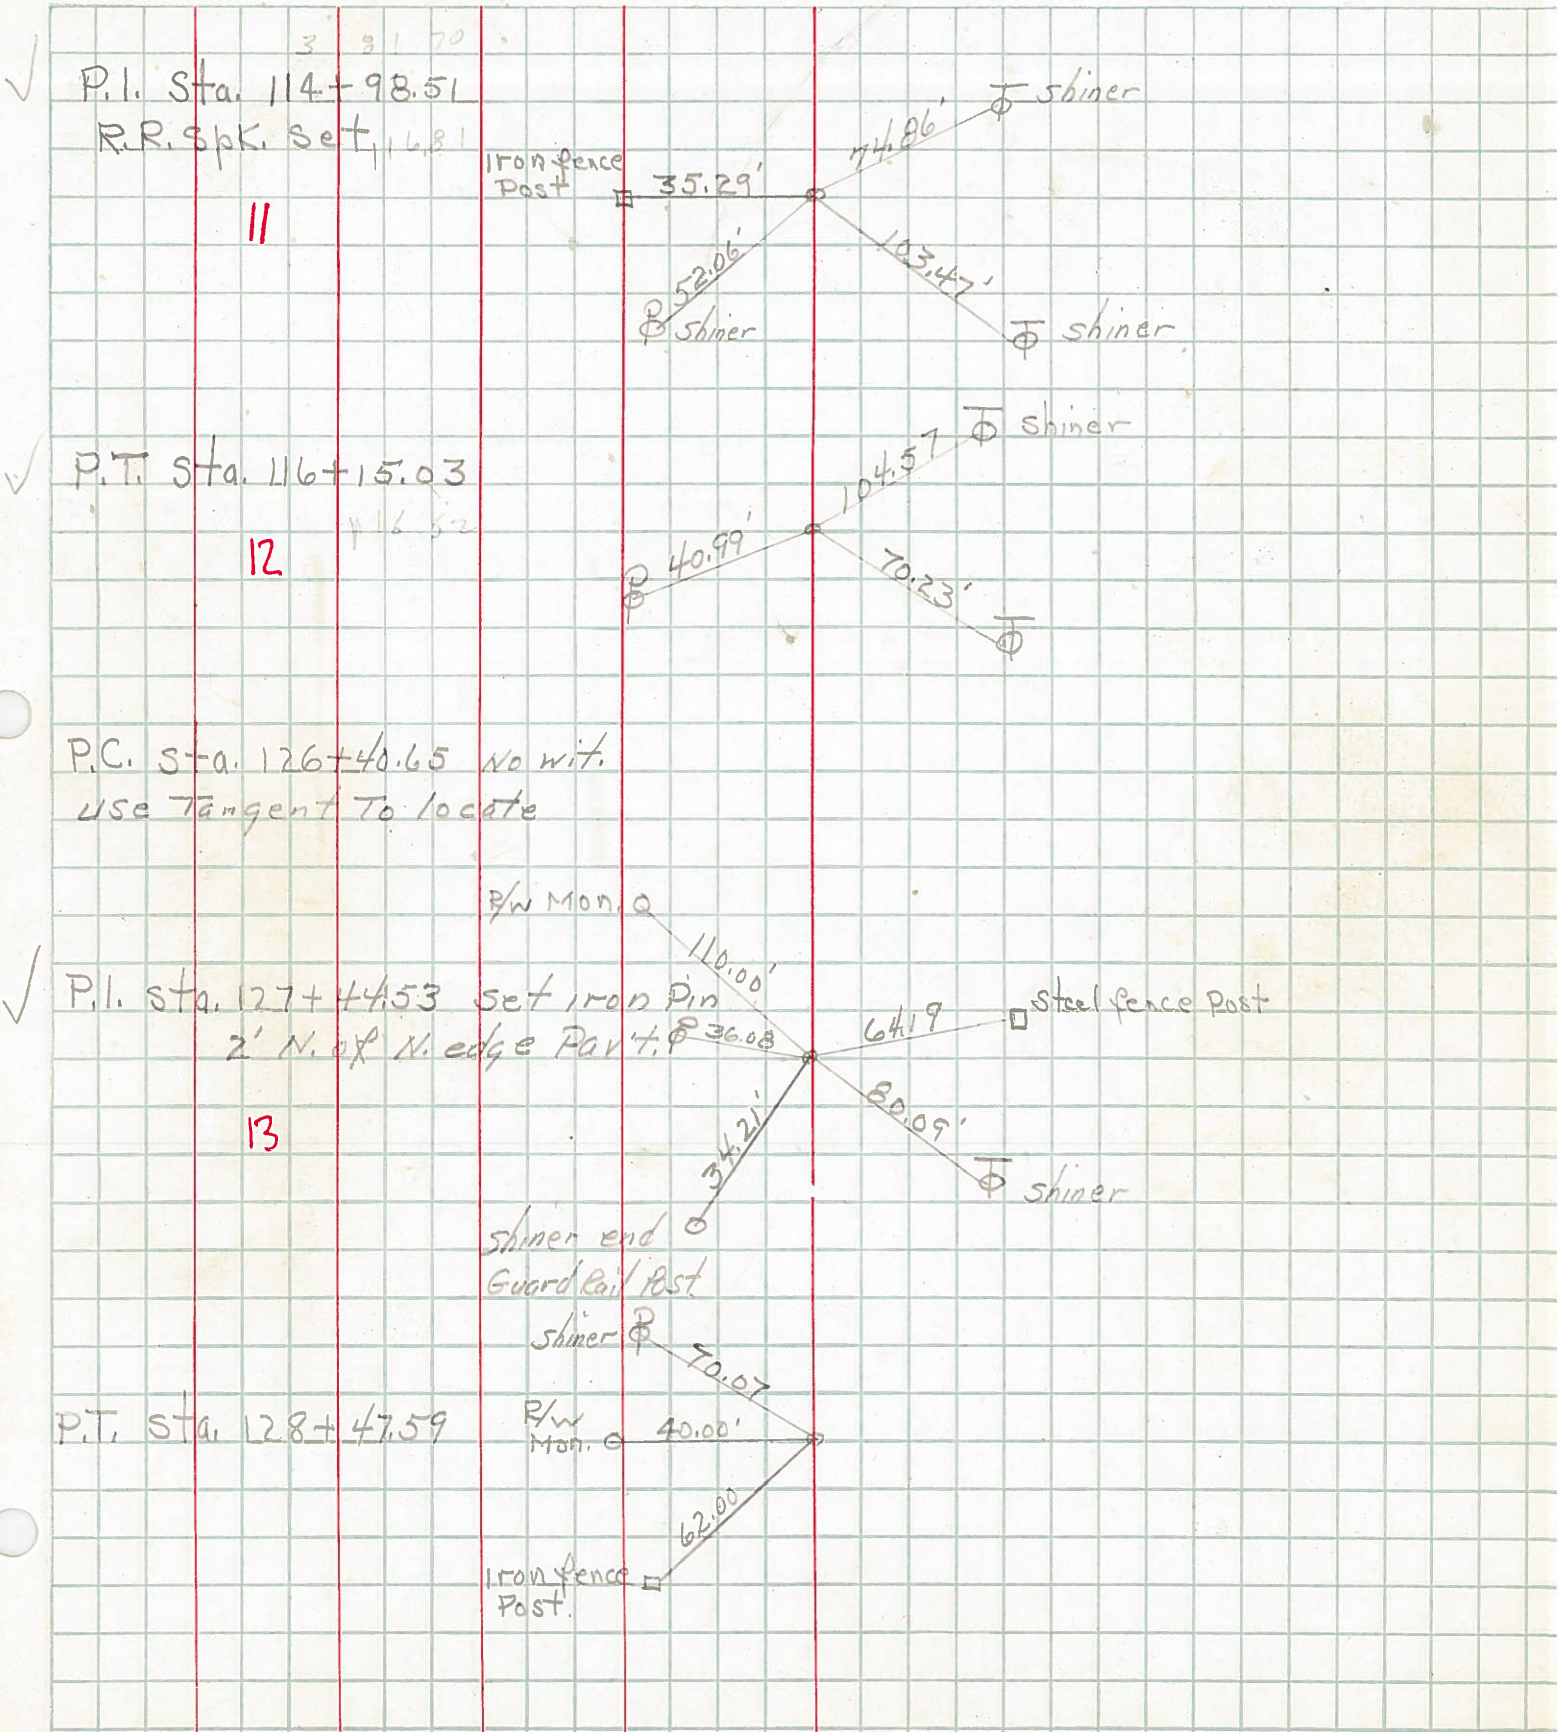 P.I. Sta. 114+98.51
R.R. spk. set
11
Iron fence
Post
35.29'
74.86'
shiner
52.06'
shiner
103.47'
shiner
P.T. Sta. 116+15.03
12
104.57
shiner
40.99'
70.23'
P.C. Sta. 126+40.65 No wit.
use Tangent To locate
R/W Mon.
110.00'
P.I. sta. 127+44.53 set iron Pin
2' N. of N. edge Pav't.
36.08
64.19
Steel fence Post
13
34.21'
80.09'
shiner
shiner end
Guard Rail Post
shiner
70.07
P.T. Sta. 128+47.59
R/W
Mon.
40.00'
62.00
Iron fence
Post.